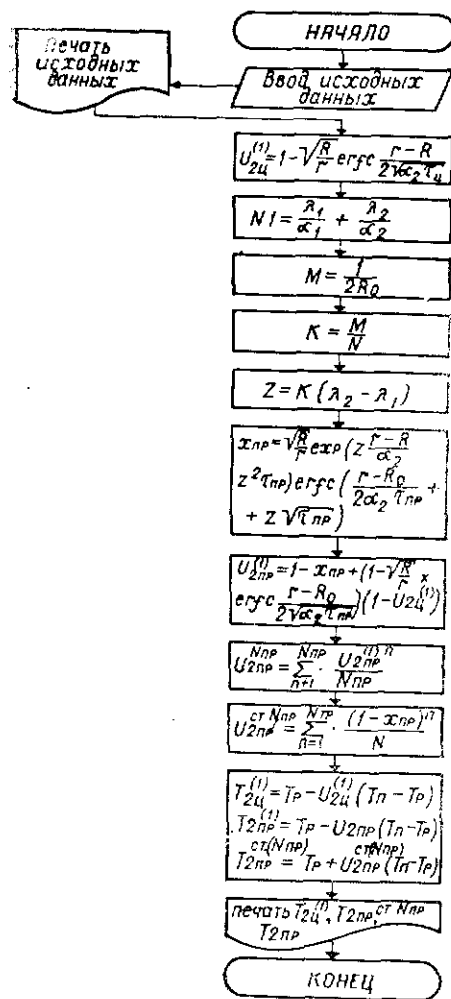 НАЧАЛО
Печать
исходных
данных
Ввод исходных
данных
U₂ц⁽¹⁾ = 1 - √(R/r) erfc (r - R)/(2√(α₂ τц))
N1 = λ₁/α₁ + λ₂/α₂
M = 1/(2R₀)
K = M/N
Z = K (λ₂ - λ₁)
xпр = √(R/r) exp (z (r - R)/α₂
z² τпр) erfc ( (r - R₀)/(2α₂ τпр) +
+ z √τпр )
U₂пр⁽¹⁾ = 1 - xпр + (1 - √(R/r) ×
erfc (r - R₀)/(2√(α₂ τпр)) ) (1 - U₂ц⁽¹⁾)
U₂пр^Nпр = Σ_{n+1}^{Nпр} · U₂пр⁽¹⁾ⁿ/Nпр
U₂пр^{ст Nпр} = Σ_{n=1}^{Nпр} · (1 - xпр)ⁿ/N
T₂ц⁽¹⁾ = Tр - U₂ц⁽¹⁾ (Tп - Tр)
T₂пр⁽¹⁾ = Tр - U₂пр (Tп - Tр)
T₂пр^{ст(Nпр)} = Tр + U₂пр^{ст(Nпр)} (Tп - Tр)
печать T₂ц⁽¹⁾, T₂пр, ст Nпр
T₂пр
КОНЕЦ